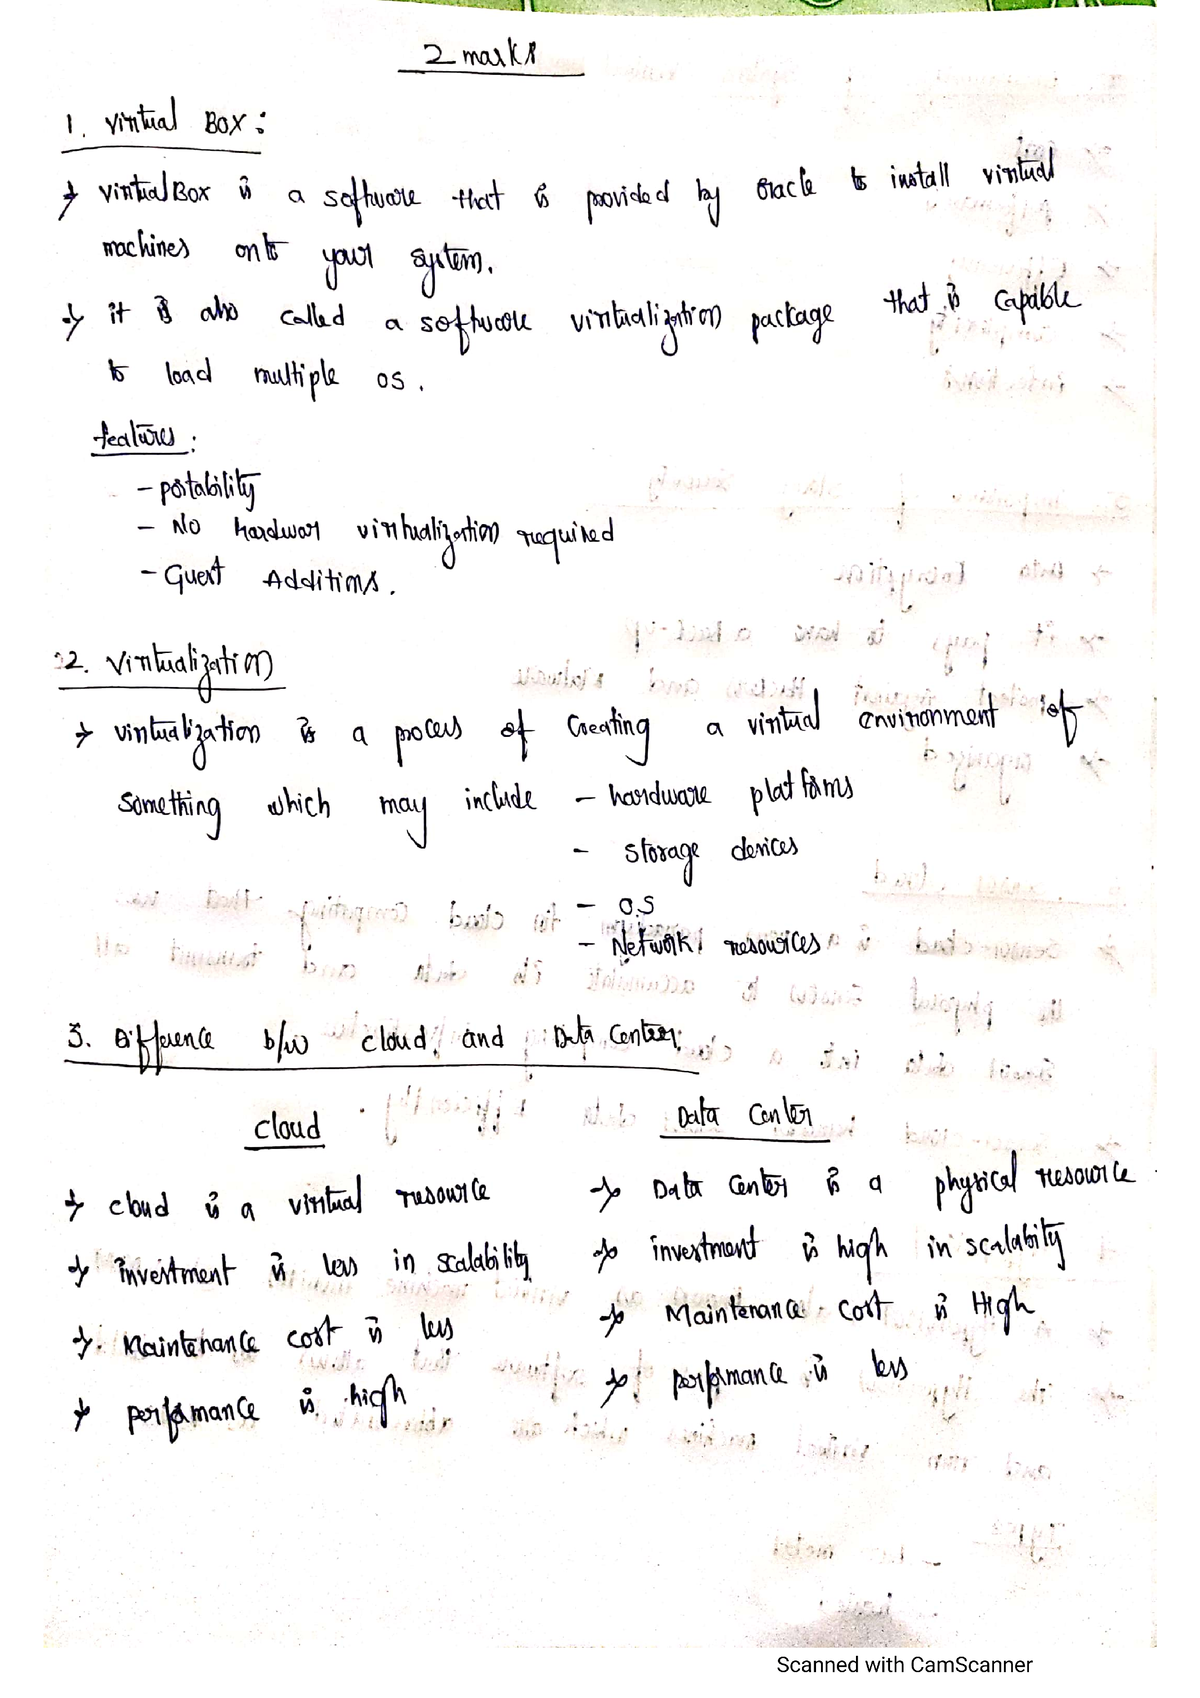 2 marks
1. Virtual Box:
→ VirtualBox is a software that is provided by Oracle to install virtual
machines onto your system.
→ it is also called a software virtualization package that is capable
to load multiple OS.
features:
- portability
- No hardwar virtualization required
- Guest Additions.
2. Virtualization
→ virtualization is a process of Creating a virtual environment of
something which may include - hardware platforms
- storage devices
- O.S
- Network resources
3. Difference b/w cloud and Data Center:
cloud
Data Center
→ cloud is a virtual resource
→ Data Center is a physical resource
→ investment is less in scalability
→ investment is high in scalability
→ Maintenance cost is less
→ Maintenance cost is High
→ performance is high
→ performance is less
Scanned with CamScanner